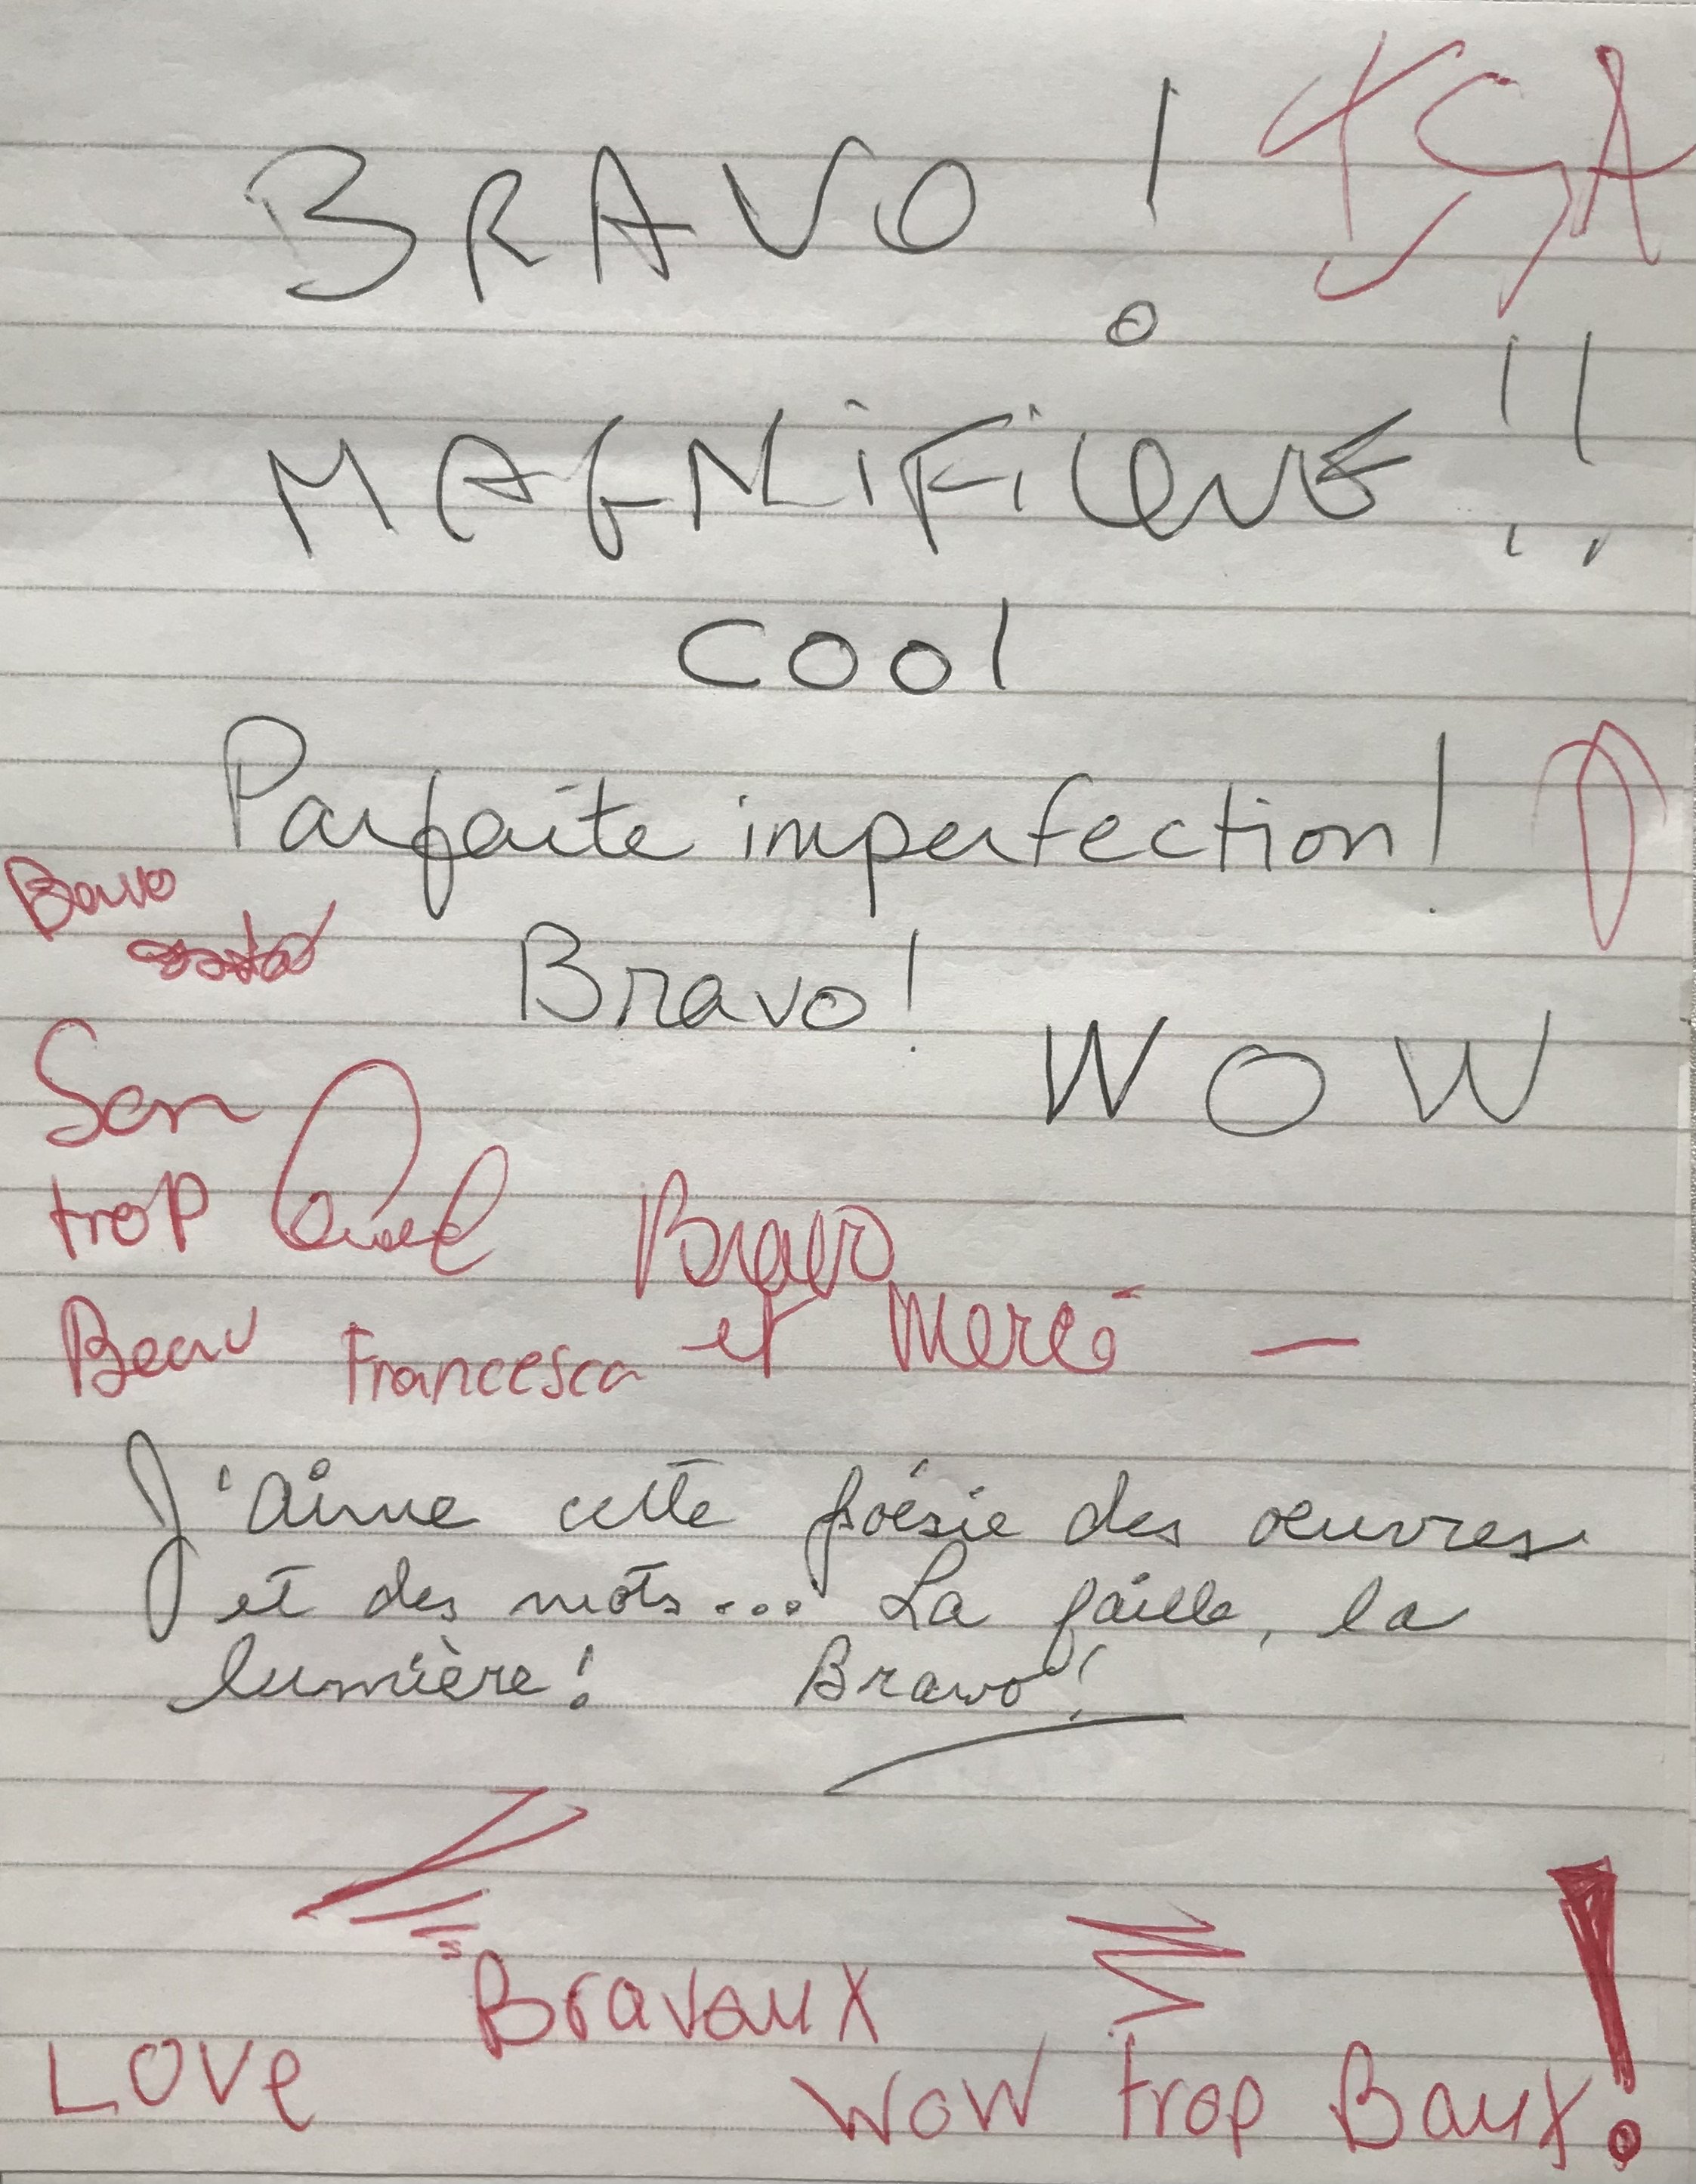 BRAVO !
MAGNiFiQUE !!
cool
Parfaite imperfection !
Bravo
Bravo !
WOW
Son
trop
Beau
Bravo
et Mercé —
Francesca
J'aime cette poésie des oeuvres
et des mots... La faille, la
lumière ! Bravo !
Bravaux
LOVe
WOW trop Baux !